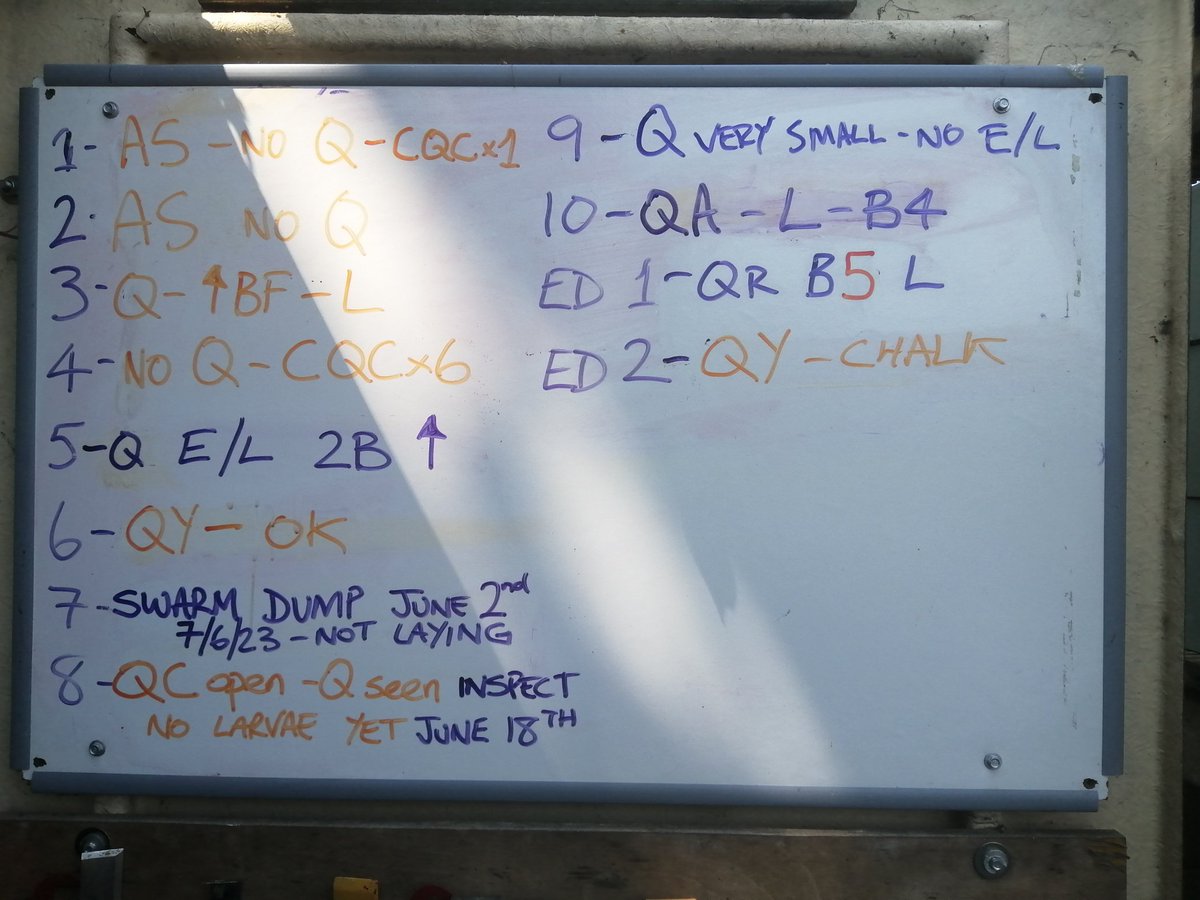 1- AS - NO Q - CQC×1
2- AS NO Q
3- Q - ↑BF - L
4- NO Q - CQC×6
5- Q E/L 2B ↑
6- QY - OK
7- SWARM DUMP JUNE 2nd
7/6/23 - NOT LAYING
8- QC open - Q seen INSPECT
NO LARVAE YET JUNE 18TH
9 - Q VERY SMALL - NO E/L
10 - QA - L - B4
ED 1 - QR B5 L
ED 2 - QY - CHALK